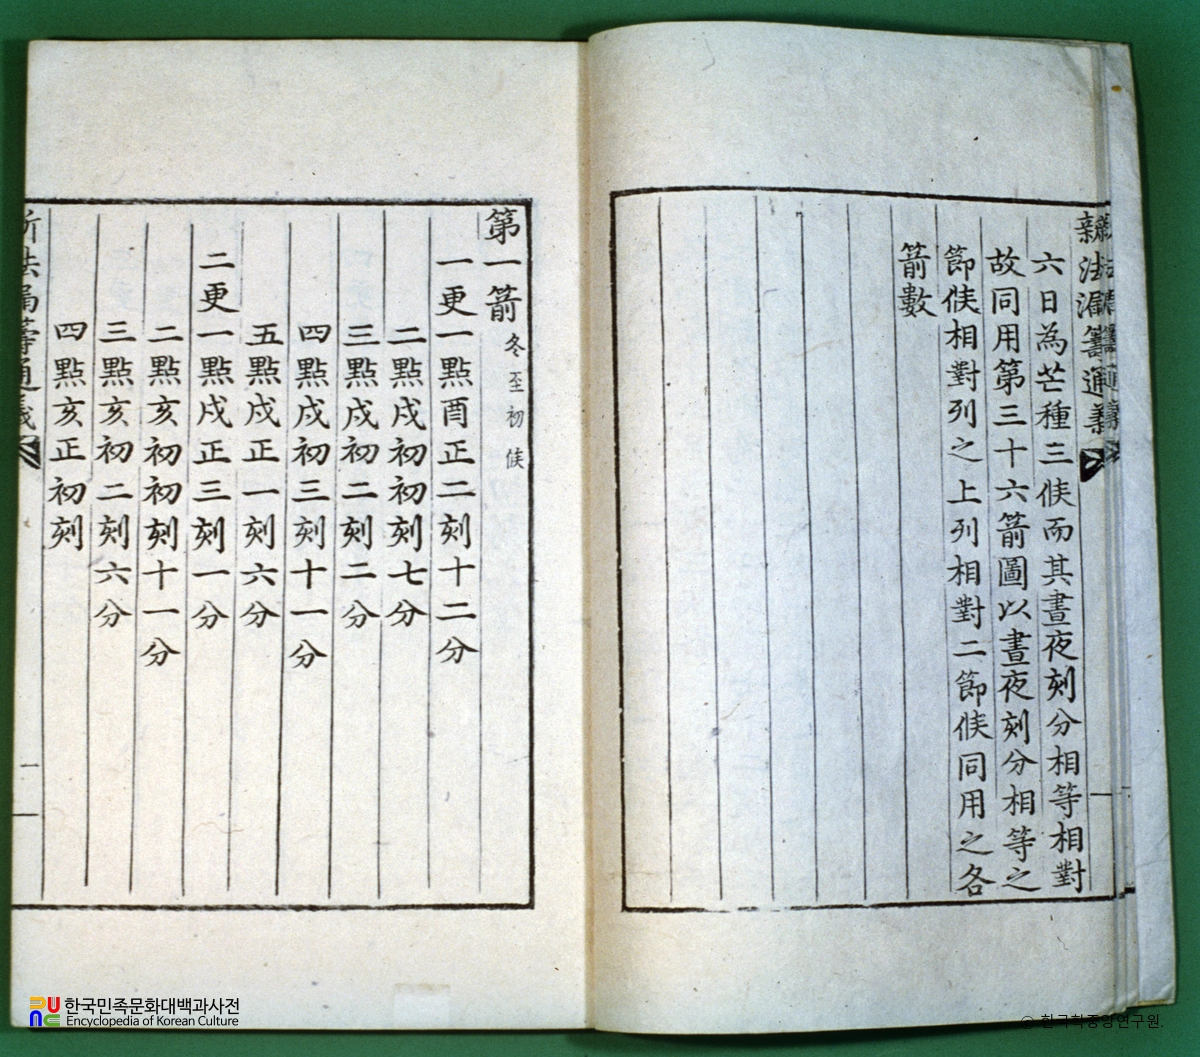 新法漏籌通義
六日為芒種三候而其晝夜刻分相等相對
故同用第三十六箭圖以晝夜刻分相等之
節候相對列之上列相對二節候同用之各
箭數
第一箭 冬至初候
一更一點酉正二刻十二分
二點戌初初刻七分
三點戌初二刻二分
四點戌初三刻十一分
五點戌正一刻六分
二更一點戌正三刻一分
二點亥初初刻十一分
三點亥初二刻六分
四點亥正初刻
新法漏籌通義
한국민족문화대백과사전
Encyclopedia of Korean Culture
© 한국학중앙연구원.